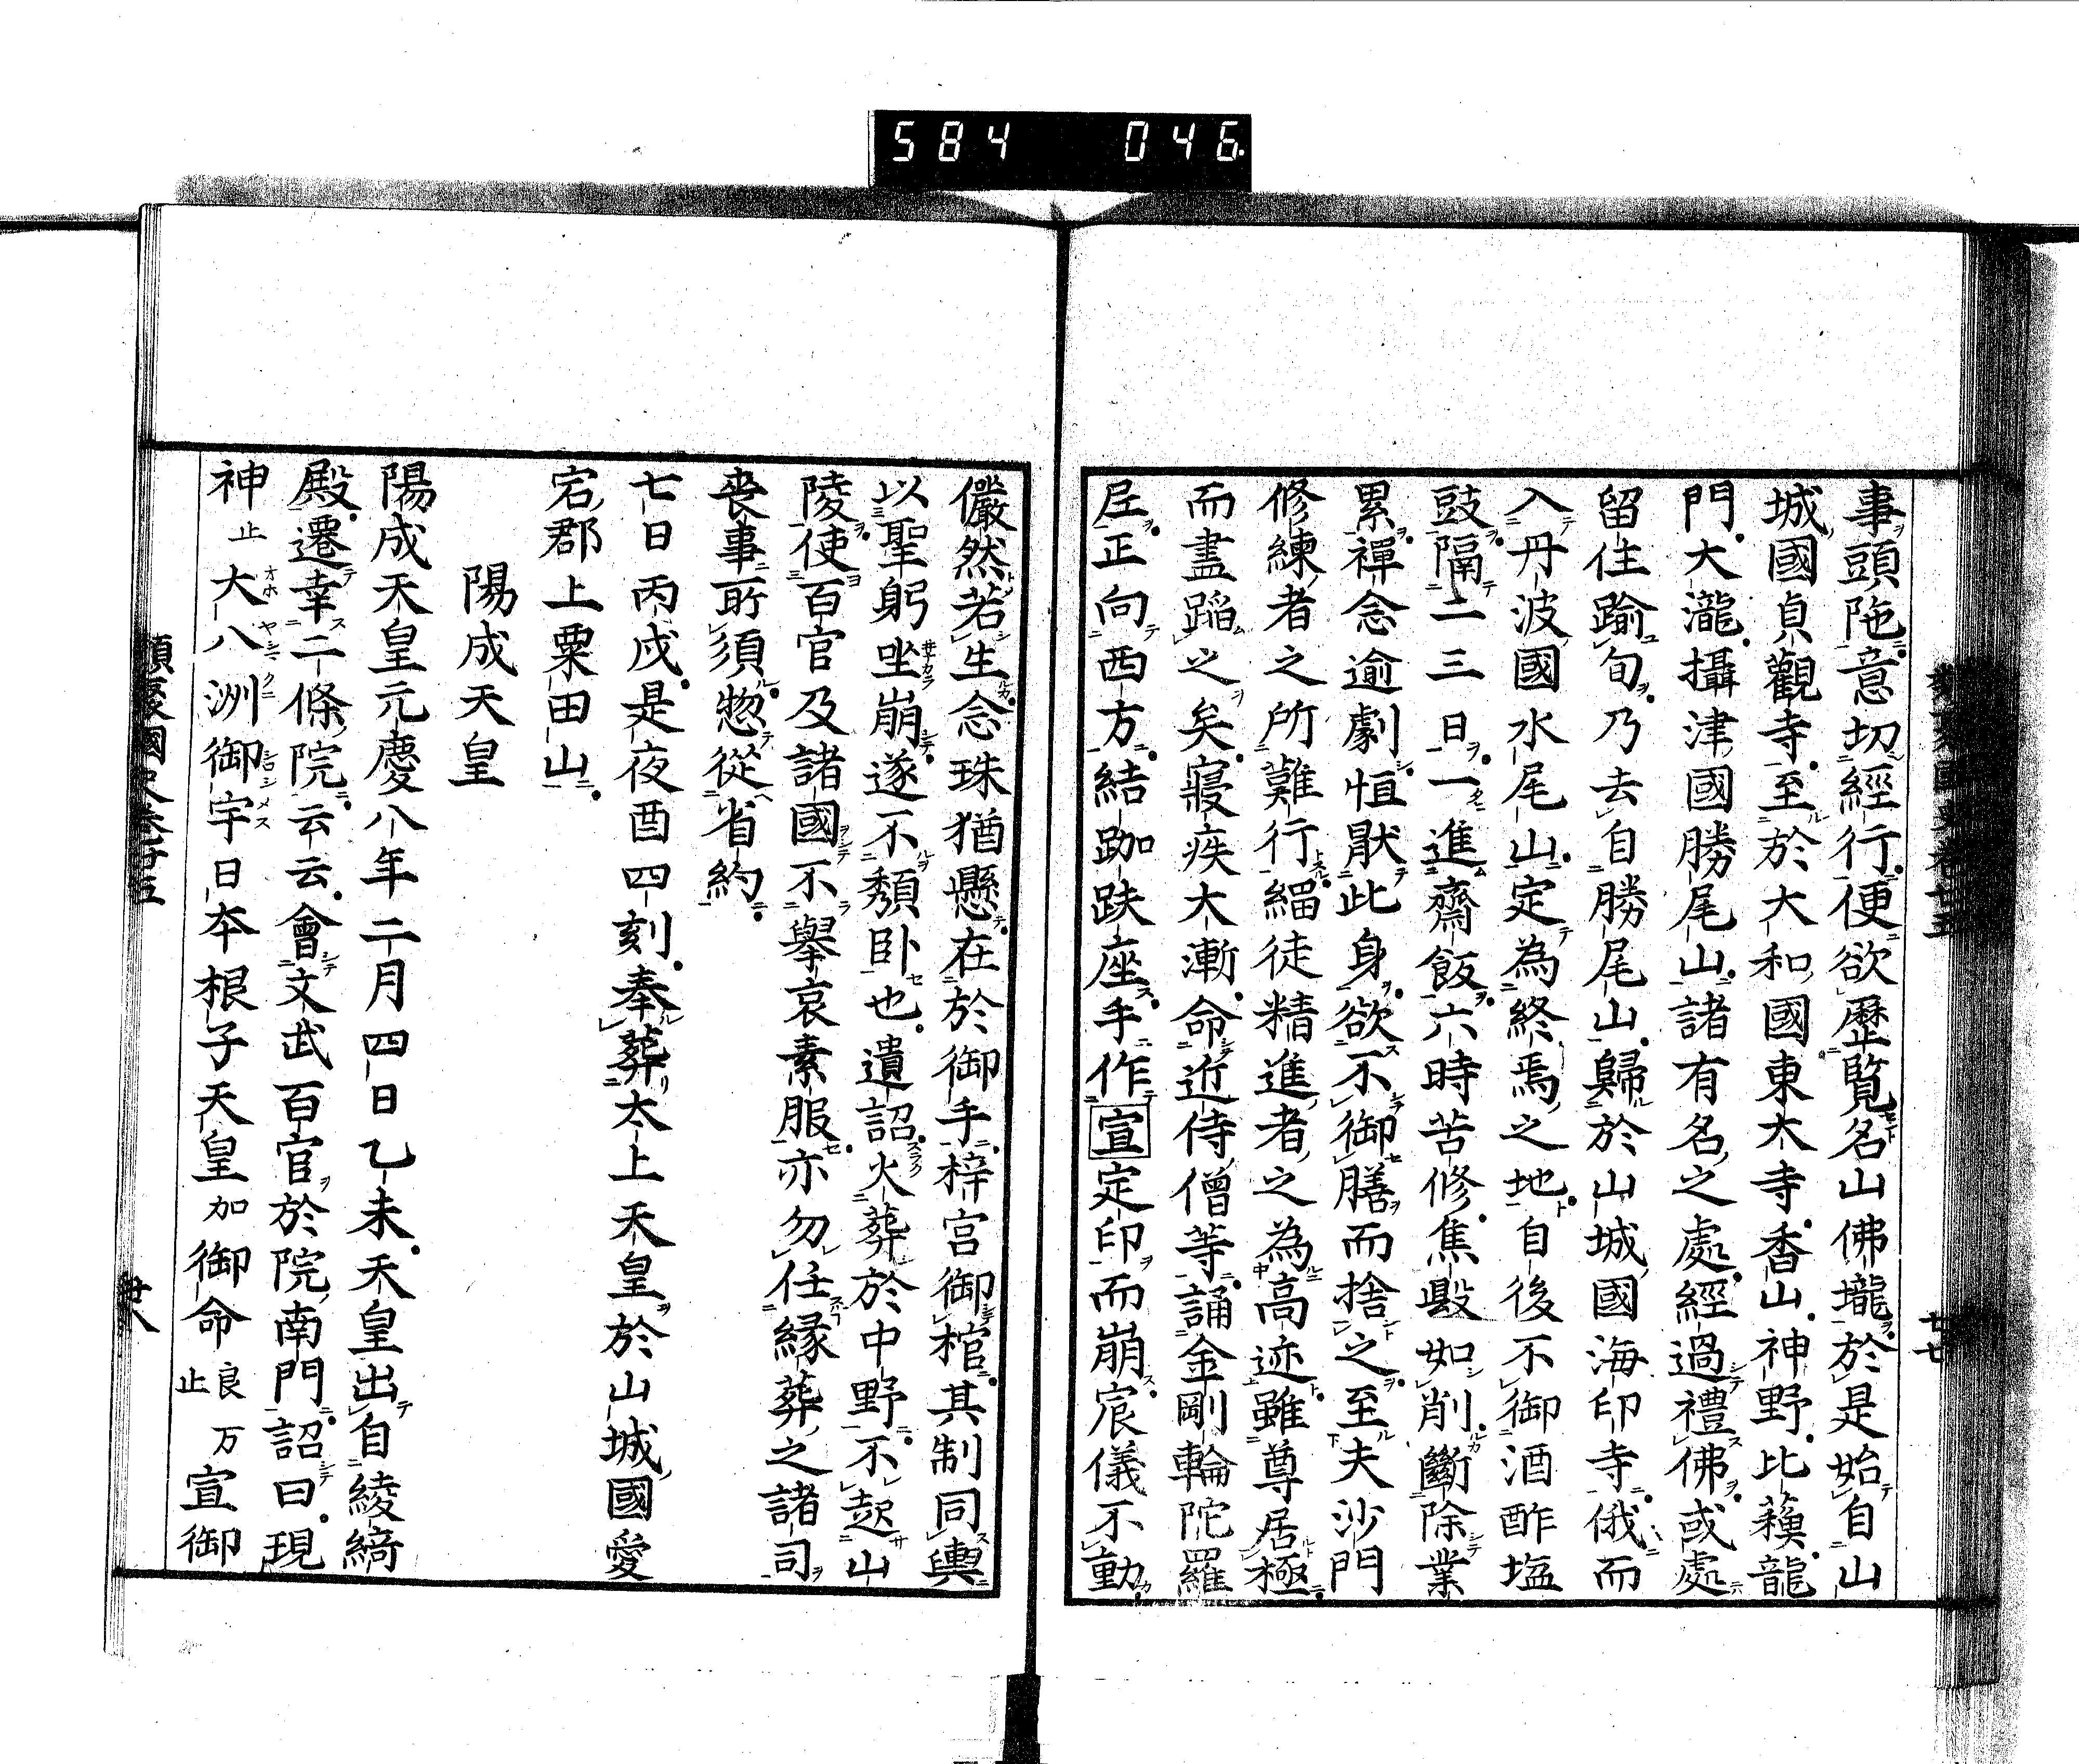 584 046
類聚國史卷廿五 廿七
事頭陁意切經行便欲歷覧名山佛壠於是始自山
城國貞觀寺至於大和國東大寺香山神野比蘓龍
門大瀧攝津國勝尾山諸有名之處經過禮佛或處
留住踰旬乃去自勝尾山歸於山城國海印寺俄而
入丹波國水尾山定為終焉之地自後不御酒酢塩
豉隔二三日一進齋飯六時苦修焦毀如削斷除業
累禪念逾劇恒猒此身欲不御膳而捨之至夫沙門
修練者之所難行緇徒精進者之為高迹雖尊居極
而盡蹈之矣寢疾大漸命近侍僧等誦金剛輪陀羅
尼正向西方結跏趺座手作宣定印而崩宸儀不動
儼然若生念珠猶懸在於御手梓宮御棺其制同輿
以聖躬坐崩遂不頽卧也遺詔火葬於中野不起山
陵使百官及諸國不舉哀素服亦勿任縁葬之諸司
喪事所須惣從省約
七日丙戌是夜酉四刻奉葬太上天皇於山城國愛
宕郡上粟田山
陽成天皇
陽成天皇元慶八年二月四日乙未天皇出自綾綺
殿遷幸二條院云云會文武百官於院南門詔曰現
神止大八洲御宇日本根子天皇加御命良止万宣御
類聚國史卷廿五 廿八